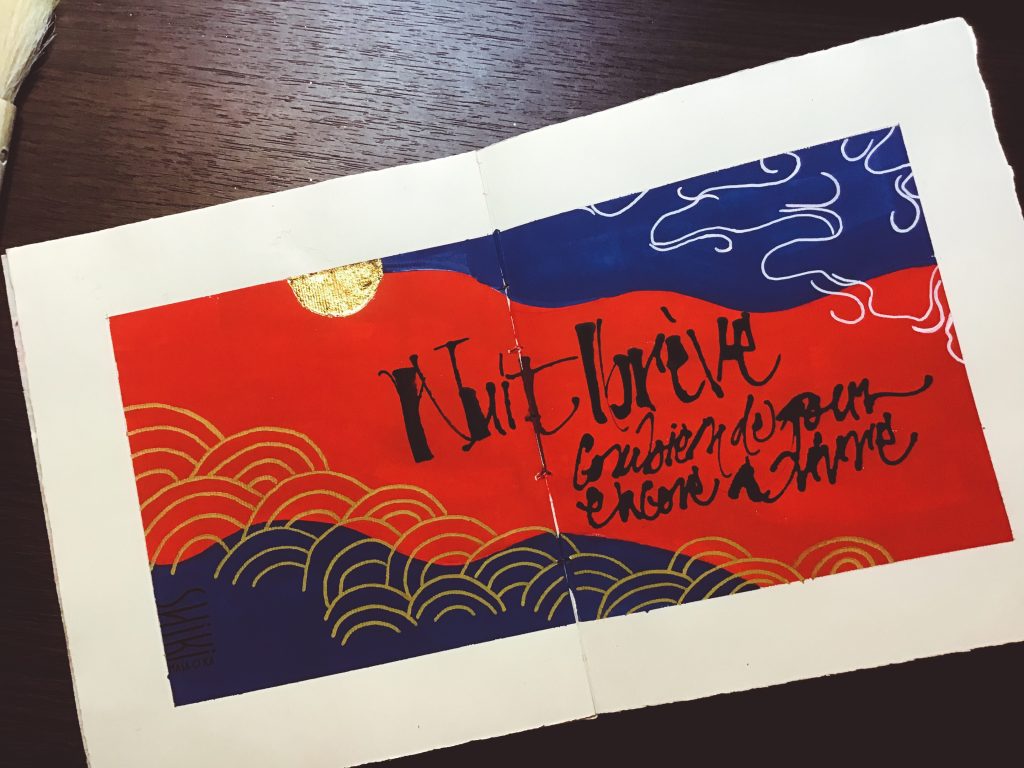 Nuit brève
Combien de jours
encore à vivre
SHIKI